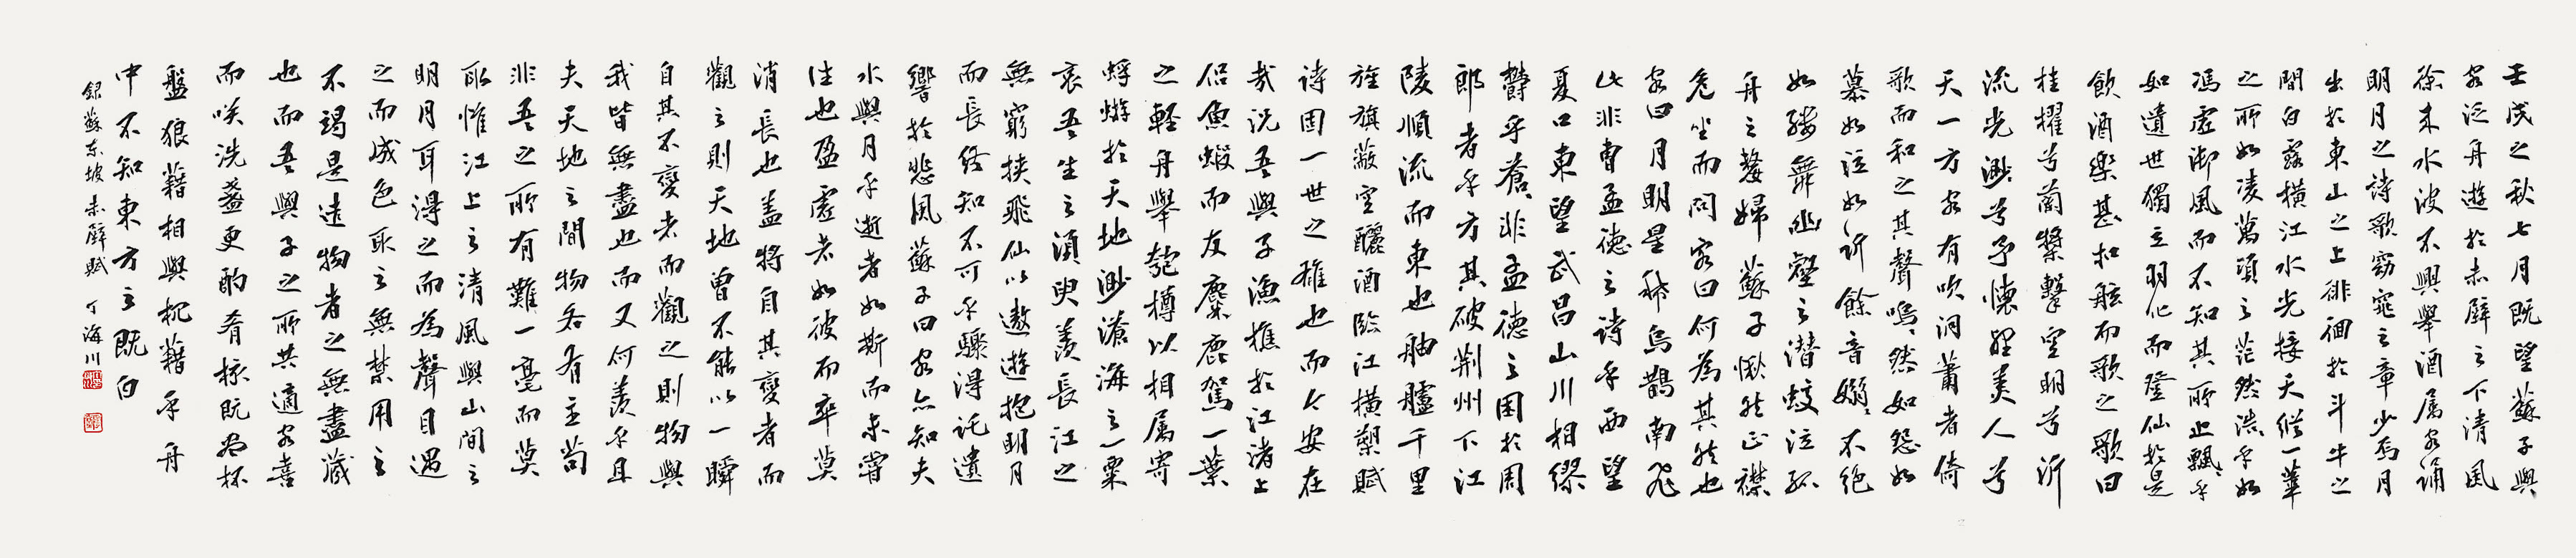 壬戌之秋七月既望蘇子與
客泛舟遊於赤壁之下清風
徐来水波不興舉酒属客誦
明月之詩歌窈窕之章少焉月
出於東山之上徘徊於斗牛之
間白露橫江水光接天縱一葦
之所如凌萬頃之茫然浩乎如
馮虛御風而不知其所止飄々乎
如遺世獨立羽化而登仙於是
飲酒樂甚扣舷而歌之歌曰
桂櫂兮蘭槳擊空明兮泝
流光渺兮予懷望美人兮
天一方客有吹洞蕭者倚
歌而和之其聲嗚々然如怨如
慕如泣如訴餘音嫋々不绝
如縷舞幽壑之潜蛟泣孤
舟之嫠婦蘇子愀然正襟
危坐而問客曰何為其然也
客曰月明星稀烏鵲南飛
此非曹孟德之詩乎西望
夏口東望武昌山川相繆
欝乎蒼々非孟德之困於周
郎者乎方其破荆州下江
陵順流而東也舳艫千里
旌旗蔽空釃酒臨江横槊賦
诗固一世之雄也而今安在
哉况吾與子漁樵於江渚上
侣魚蝦而友麋鹿駕一葉
之輕舟舉匏樽以相属寄
蜉蝣於天地渺滄海之一粟
哀吾生之須臾羨長江之
無窮挟飛仙以遨遊抱明月
而長终知不可乎驟得託遺
響於悲風蘇子曰客亦知夫
水與月乎逝者如斯而未嘗
往也盈虛者如彼而卒莫
消長也盖將自其變者而
觀之則天地曾不能以一瞬
自其不變者而觀之則物與
我皆無盡也而又何羨乎且
夫天地之間物各有主茍
非吾之所有雖一毫而莫
取惟江上之清風與山間之
明月耳得之而為聲目遇
之而成色取之無禁用之
不竭是造物者之無盡藏
也而吾與子之所共適客喜
而咲洗盞更酌肴核既盡杯
盤狼藉相與枕藉乎舟
中不知東方之既白
録蘇东坡赤壁賦 丁海川